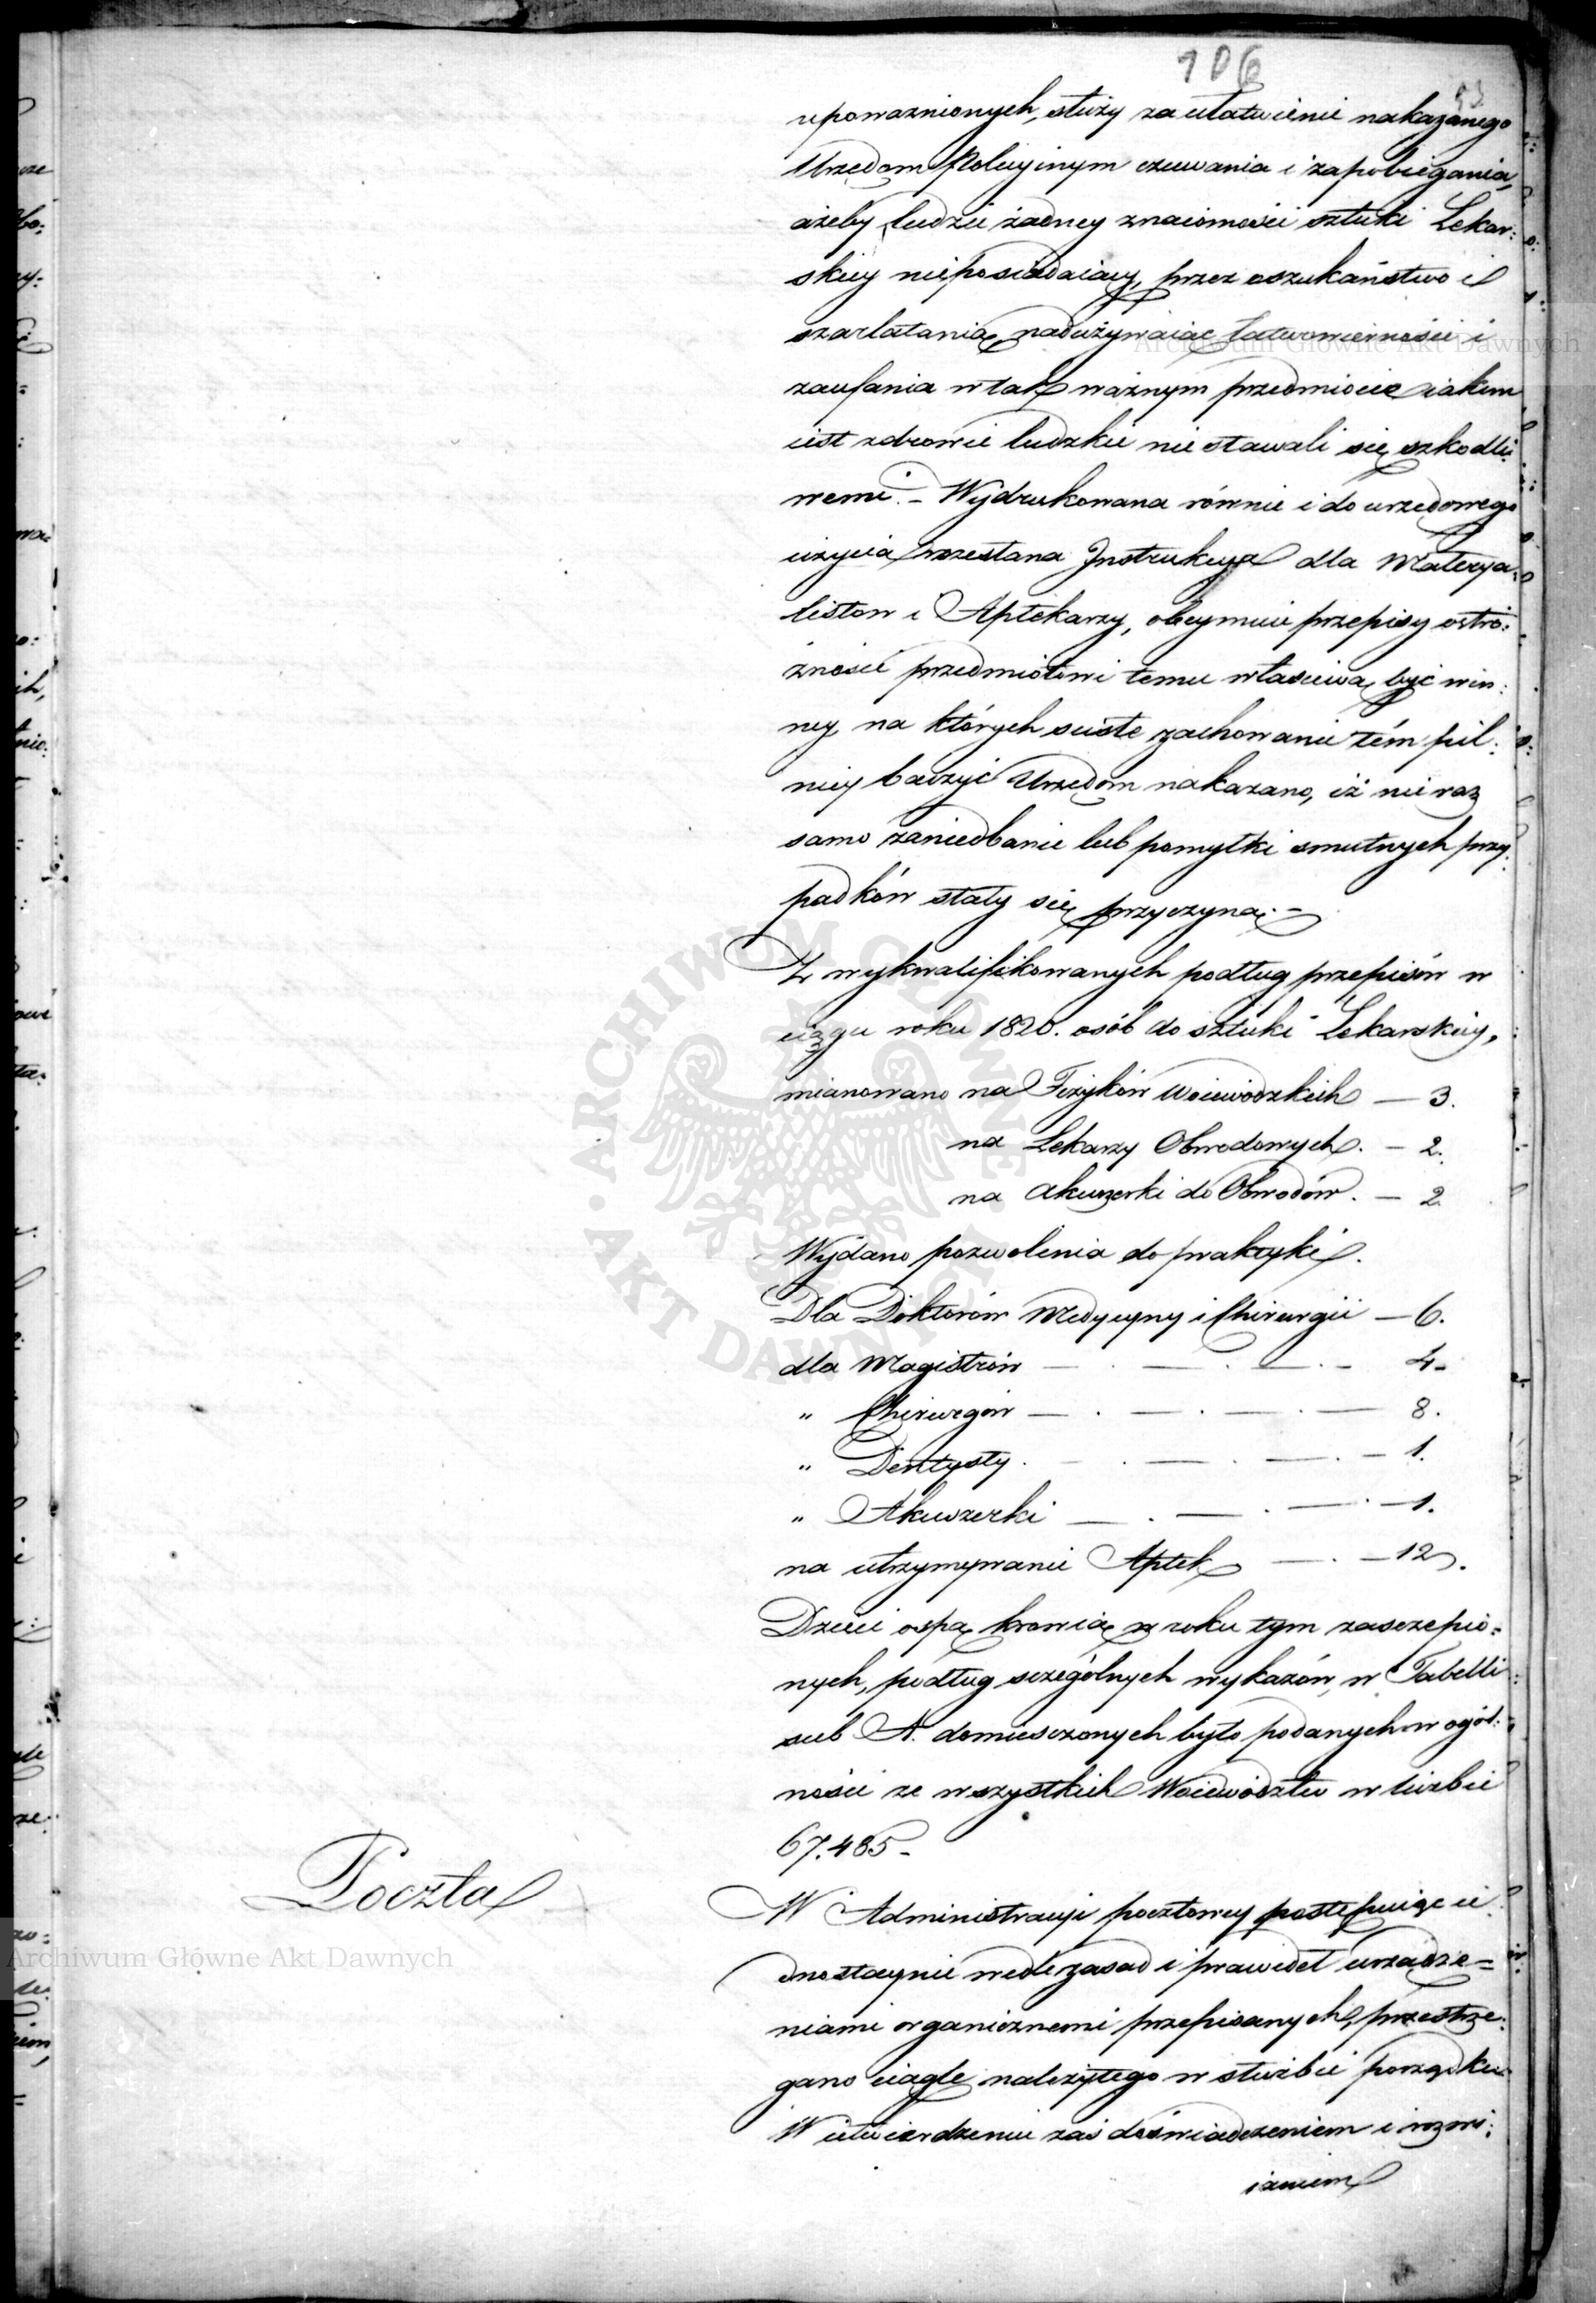 106
93
upoważnionych, służy za ułatwienie nakazanego
Urzędom Policyinym czuwania i zapobiegania,
ażeby ludzie żadney znaiomości sztuki Lekar:
skiey nieposiadaiący, przez oszukaństwo i
szarlatanią nadużywaiąc łatwowierności i
zaufania w tak ważnym przedmiocie iakim
iest zdrowie ludzkie nie stawali się szkodli:
wemi. – Wydrukowana równie i do urzędowego
użycia rozesłana Jnstrukcya dla Materya:
listow i Aptekarzy, obeymuie przepisy ostro:
żności przedmiotowi temu właściwą być win:
ney, na których scisłe zachowanie tém pil:
niey baczyć Urzędom nakazano, iż nie raz
samo zaniedbanie lub pomyłki smutnych przy:
padków stały się przyczyną. –
Z wykwalifikowanych podług przepisów w
ciągu roku 1820. osób do sztuki Lekarskiey,
mianowano na Fizyków Woiewodzkich — 3.
na Lekarzy Obwodowych. – 2.
na Akuszerki do Obwodów. – 2
Wydano pozwolenia do praktyki.
Dla Doktorów Medycyny i Chirurgii — 6.
dla Magistrów — . — . — . – 4–
„ Chirurgów — . — . — . — 8.
„ Dentysty. – . — . — . – 1.
„ Akuszerki — . — . — . – 1.
na utrzymywanie Aptek — . – 12.
Dzieci ospą krowią w roku tym zaszczepio=
nych, podług szczególnych wykazów, w Tabelli
sub A. domiesczonych było podanych w ogól:
ności ze wszystkich Woiewództw w liczbie
67.485 –
Poczta
W Administracyi pocztowey postępuiąc ie
dnostaynie wedle zasad i prawideł urządze=
niami organicznemi przepisanych, przestrze:
gano ciągle należytego w służbie porządku
W utwierdzeniu zaś doświadczeniem i rozwi:
ianiem
Archiwum Główne Akt Dawnych
Archiwum Główne Akt Dawnych
ARCHIWUM GŁÓWNE AKT DAWNYCH